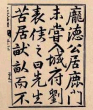 龐德公居鹿門
未嘗入城府劉
表候之曰先生
苦居畎畝而不